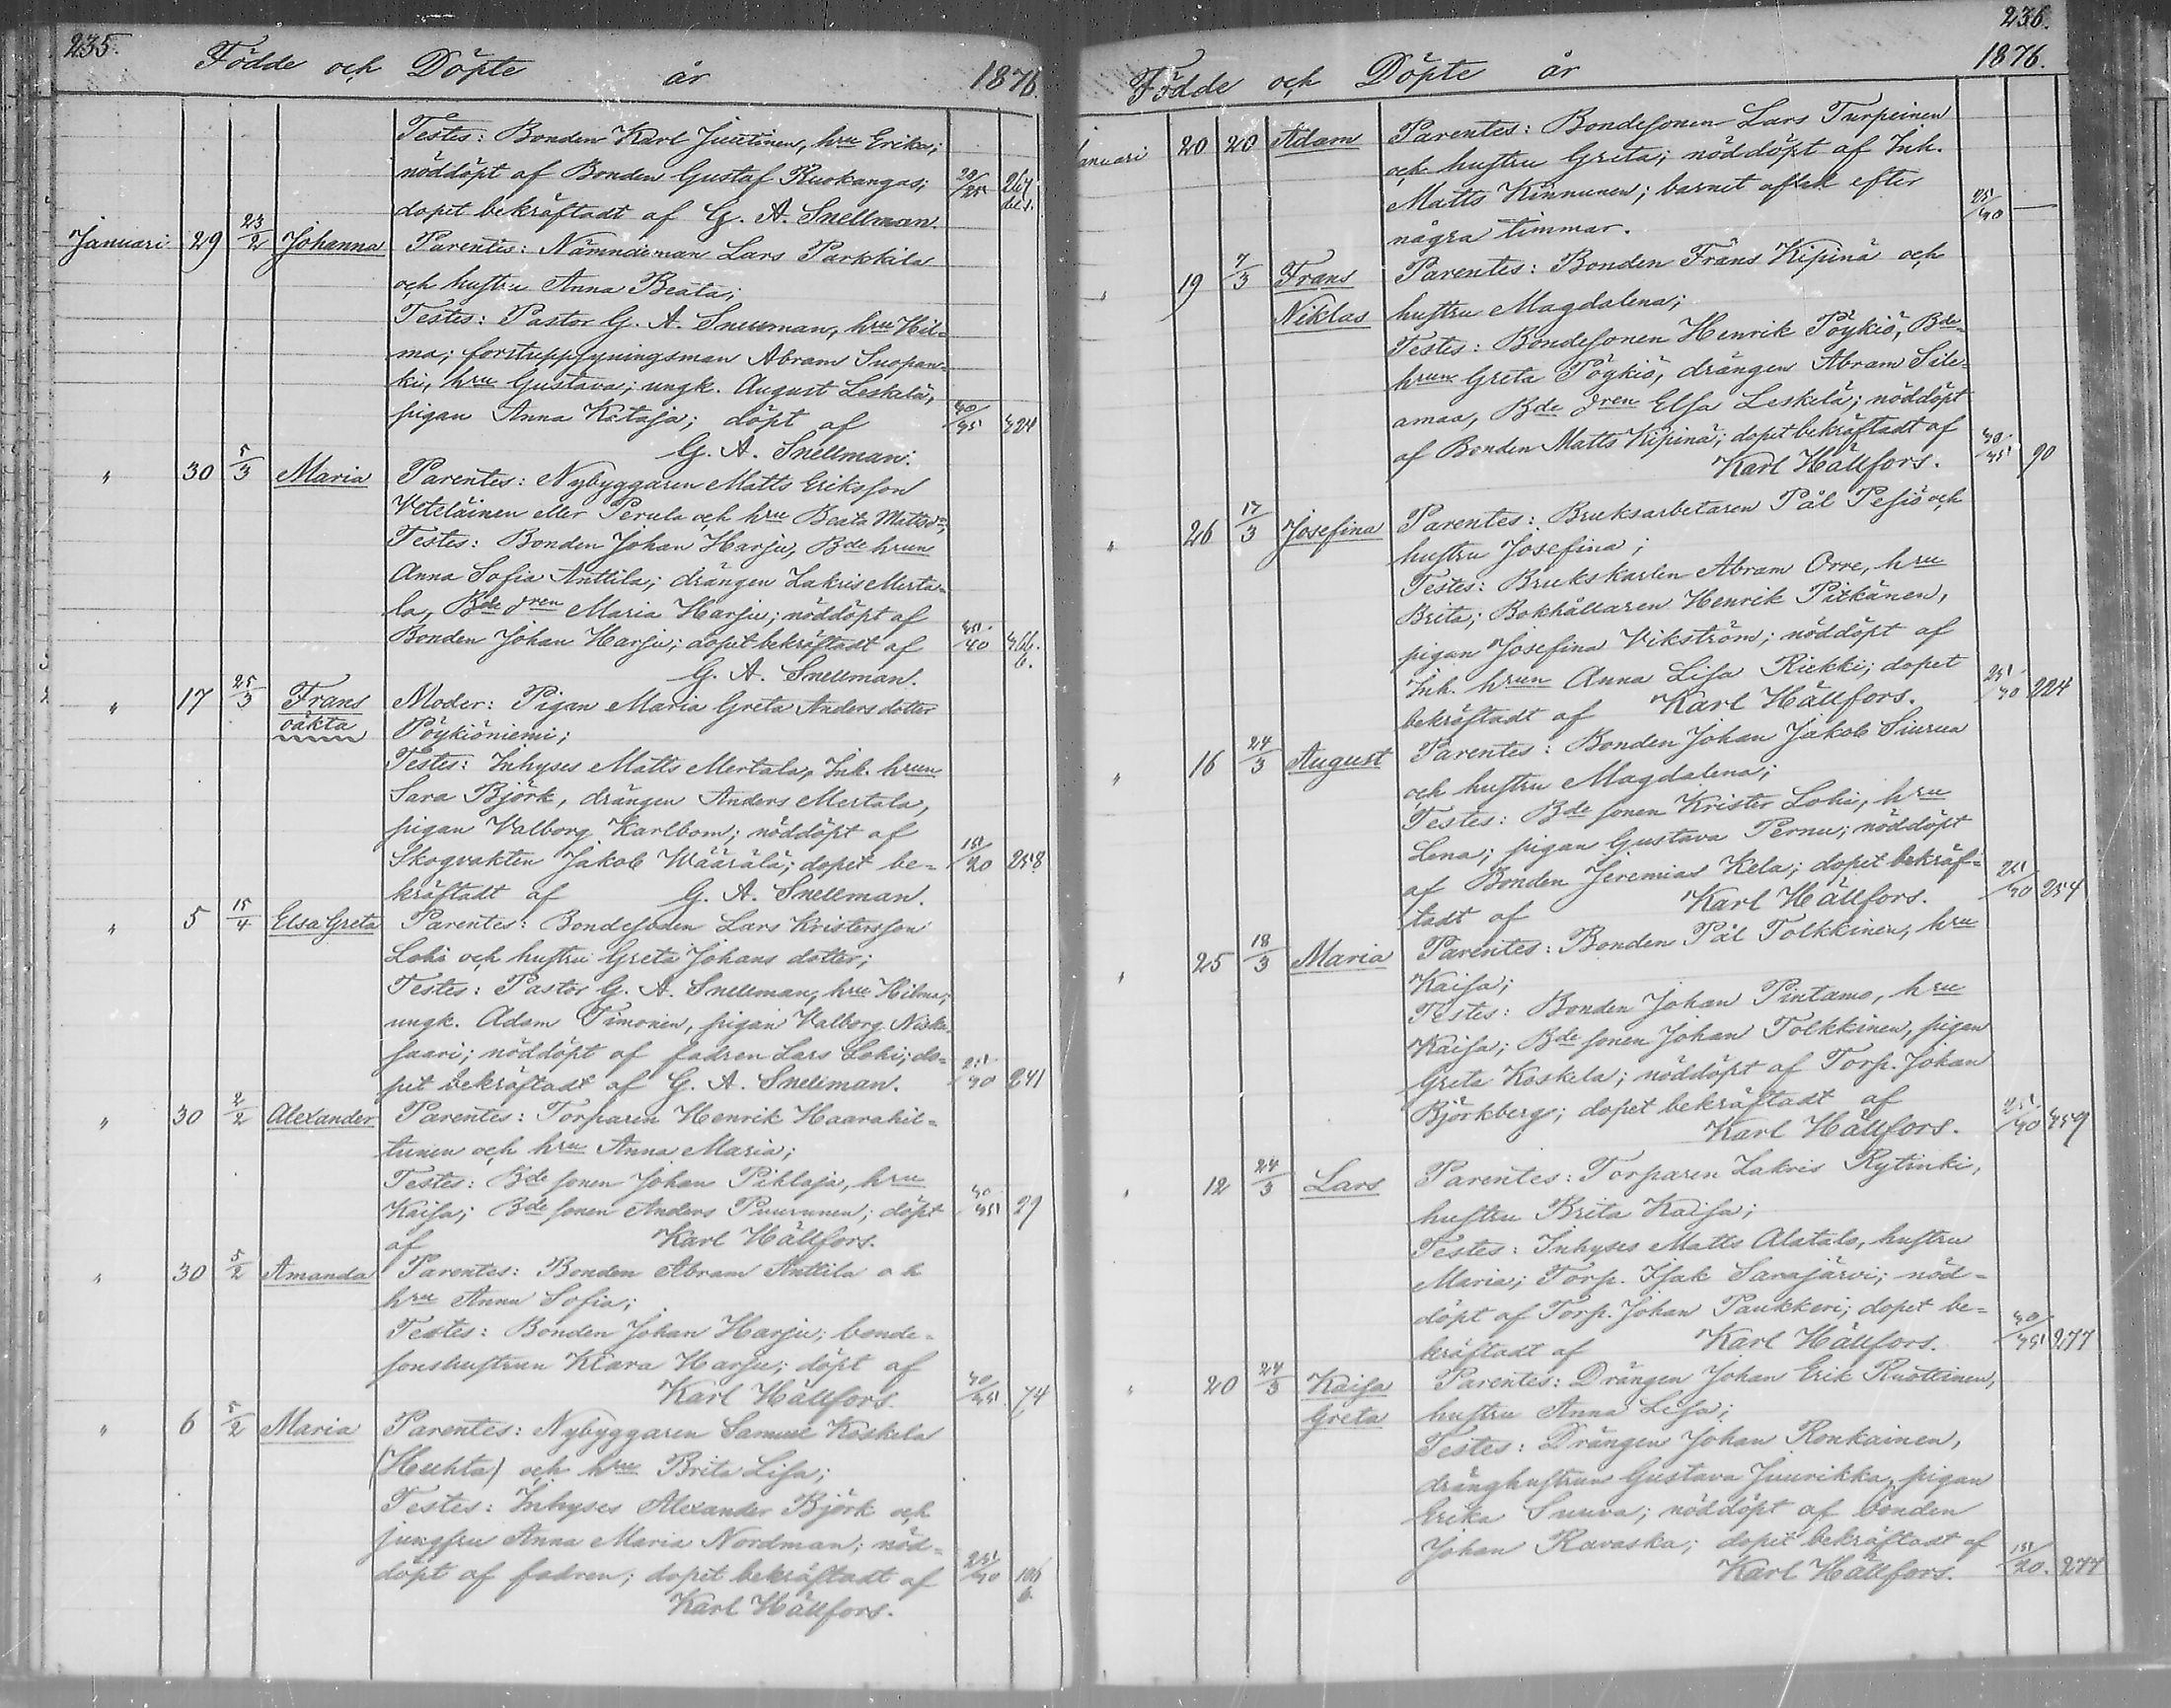 235.
Födde och Döpte år 1876.
Testes: Bonden Karl Juutinen, hru Erika;
nöddöpt af Bonden Gustaf Ruokangas; 20/25 267
dopet bekräftadt af G. A. Snellman.
Januari 29 23/2 Johanna Parentes: Nämndeman Lars Parkkila
och hustru Anna Beata;
Testes: Pastor G. A. Snellman, hru Hil-
ma; forstuppsyningsman Abram Suopan-
ki, hru Gustava; ungk. August Leskelä,
pigan Anna Kataja; döpt af
G. A. Snellman.
" 30 5/3 Maria Parentes: Nybyggaren Matts Eriksson
Veteläinen eller Perula och hru Beata Mattsdr;
Testes: Bonden Johan Harju, Bde hrun
Anna Sofia Anttila; drängen Zakris Merta-
la, Bde dren Maria Harju; nöddöpt af
Bonden Johan Harju; dopet bekräftadt af
G. A. Snellman.
" 17 25/3 Frans Moder: Pigan Maria Greta Andersdotter
oäkta Pöykiöniemi;
Testes: Inhyses Matts Mertala, Inh. hrun
Sara Björk, drängen Anders Mertala,
pigan Valborg Karlbom; nöddöpt af
Skogvakten Jakob Wäärälä; dopet be- 15/20 258
kräftadt af G. A. Snellman.
" 5 15/4 Elsa Greta Parentes: Bondesonen Lars Kristersson
Lohi och hustru Greta Johans dotter;
Testes: Pastor G. A. Snellman, hru Hilma;
ungk. Adam Timonen, pigan Valborg Niska-
saari; nöddöpt af fadren Lars Lohi; do-
pet bekräftadt af G. A. Snellman. 241
" 30 2/2 Alexander Parentes: Torparen Henrik Haarahil-
tunen och hru Anna Maria;
Testes: Bde sonen Johan Pihlaja, hru
Kaisa; Bde sonen Anders Puurunen; döpt 29
af Karl Hällfors.
" 30 5/2 Amanda Parentes: Bonden Abram Anttila och
hru Anna Sofia;
Testes: Bonden Johan Harju; bonde-
sonshustrun Klara Harju; döpt af
Karl Hällfors. 74
" 6 5/2 Maria Parentes: Nybyggaren Samuel Koskela
(Huhta) och hru Brita Lisa;
Testes: Inhyses Alexander Björk och
jungfru Anna Maria Nordman; nöd-
döpt af fadren; dopet bekräftadt af
Karl Hällfors.
236.
Födde och Döpte år 1876.
Januari 20 20 Adam Parentes: Bondesonen Lars Turpeinen
och hustru Greta; nöddöpt af Inh.
Matts Kinnunen; barnet afled efter
några timmar.
" 19 7/3 Frans Parentes: Bonden Frans Kipinä och
Niklas hustru Magdalena;
Testes: Bondesonen Henrik Pöykiö, Bde-
hrun Greta Pöykiö, drängen Abram Sile-
amaa, Bde dren Elsa Leskelä; nöddöpt
af Bonden Matts Kipinä; dopet bekräftadt af
Karl Hällfors. 90
" 26 17/3 Josefina Parentes: Bruksarbetaren Pål Pesiö och
hustru Josefina;
Testes: Brukskarlen Abram Orre, hru
Brita; Bokhållaren Henrik Pitkänen,
pigan Josefina Vikström; nöddöpt af
Inh. hrun Anna Lisa Riekki; dopet
bekräftadt af Karl Hällfors. 224
" 16 24/3 August Parentes: Bonden Johan Jakob Siurua
och hustru Magdalena;
Testes: Bde sonen Krister Lohi, hru
Lena; pigan Gustava Pernu; nöddöpt
af Bonden Jeremias Kela; dopet bekräf-
tadt af Karl Hällfors. 254
" 25 18/3 Maria Parentes: Bonden Pål Tolkkinen, hru
Kaisa;
Testes: Bonden Johan Pintamo, hru
Kaisa; Bde sonen Johan Tolkkinen, pigan
Greta Koskela; nöddöpt af Torp. Johan
Björkberg; dopet bekräftadt af
Karl Hällfors.
" 12 24/3 Lars Parentes: Torparen Zakris Rytinki,
hustru Brita Kaisa;
Testes: Inhyses Matts Alatalo, hustru
Maria; Torp. Isak Sarajärvi; nöd-
döpt af Torp. Johan Paukkeri; dopet be-
kräftadt af Karl Hällfors. 277
" 20 24/3 Kaisa Parentes: Drängen Johan Erik Ruottinen,
Greta hustru Anna Lisa;
Testes: Drängen Johan Ronkainen,
dränghustrun Gustava Juurikka, pigan
Erika Suuva; nöddöpt af bonden
Johan Ravaska; dopet bekräftadt af
Karl Hällfors. 15/20. 277